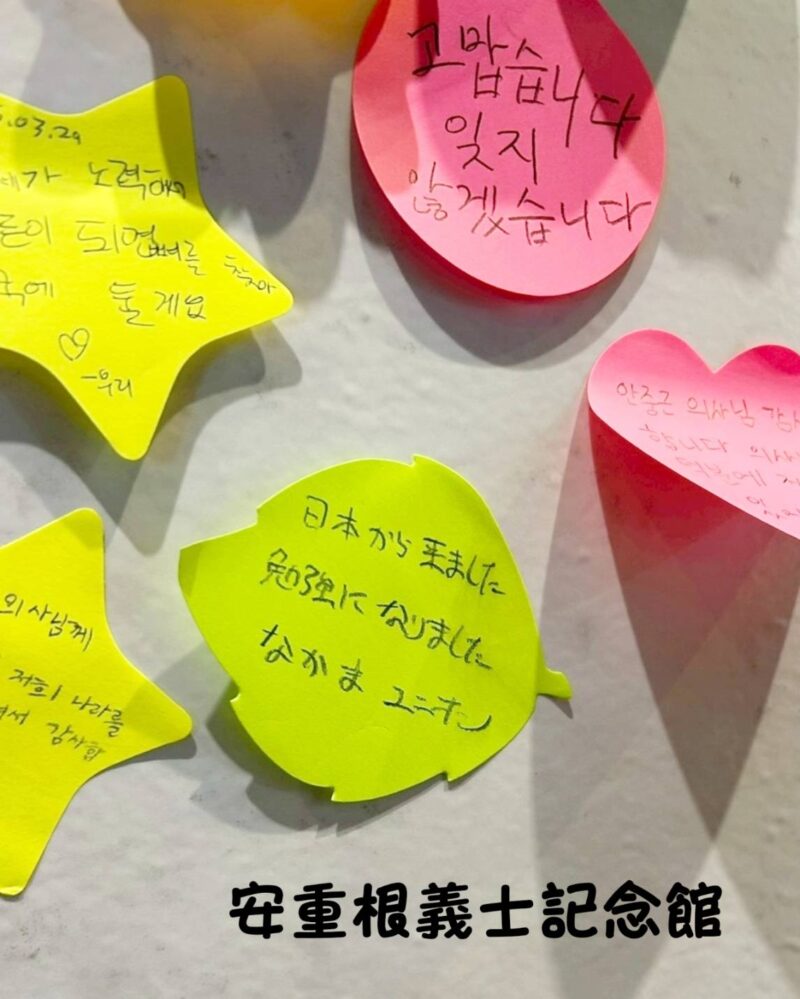 .03.29
가 노력해서
이 되면 뼈를 찾아
국에 둘게요
♡
-우리
고맙습니다
잊지
않겠습니다
안중근 의사님 감사
합니다 의사
덕분에
의사님께
저희 나라를
서 감사합
日本から来ました
勉強になりました
なかまユニオン
安重根義士記念館